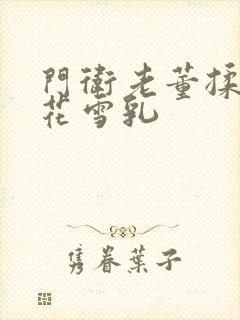 門衛老董揉
花雪乳
隽眷葉子